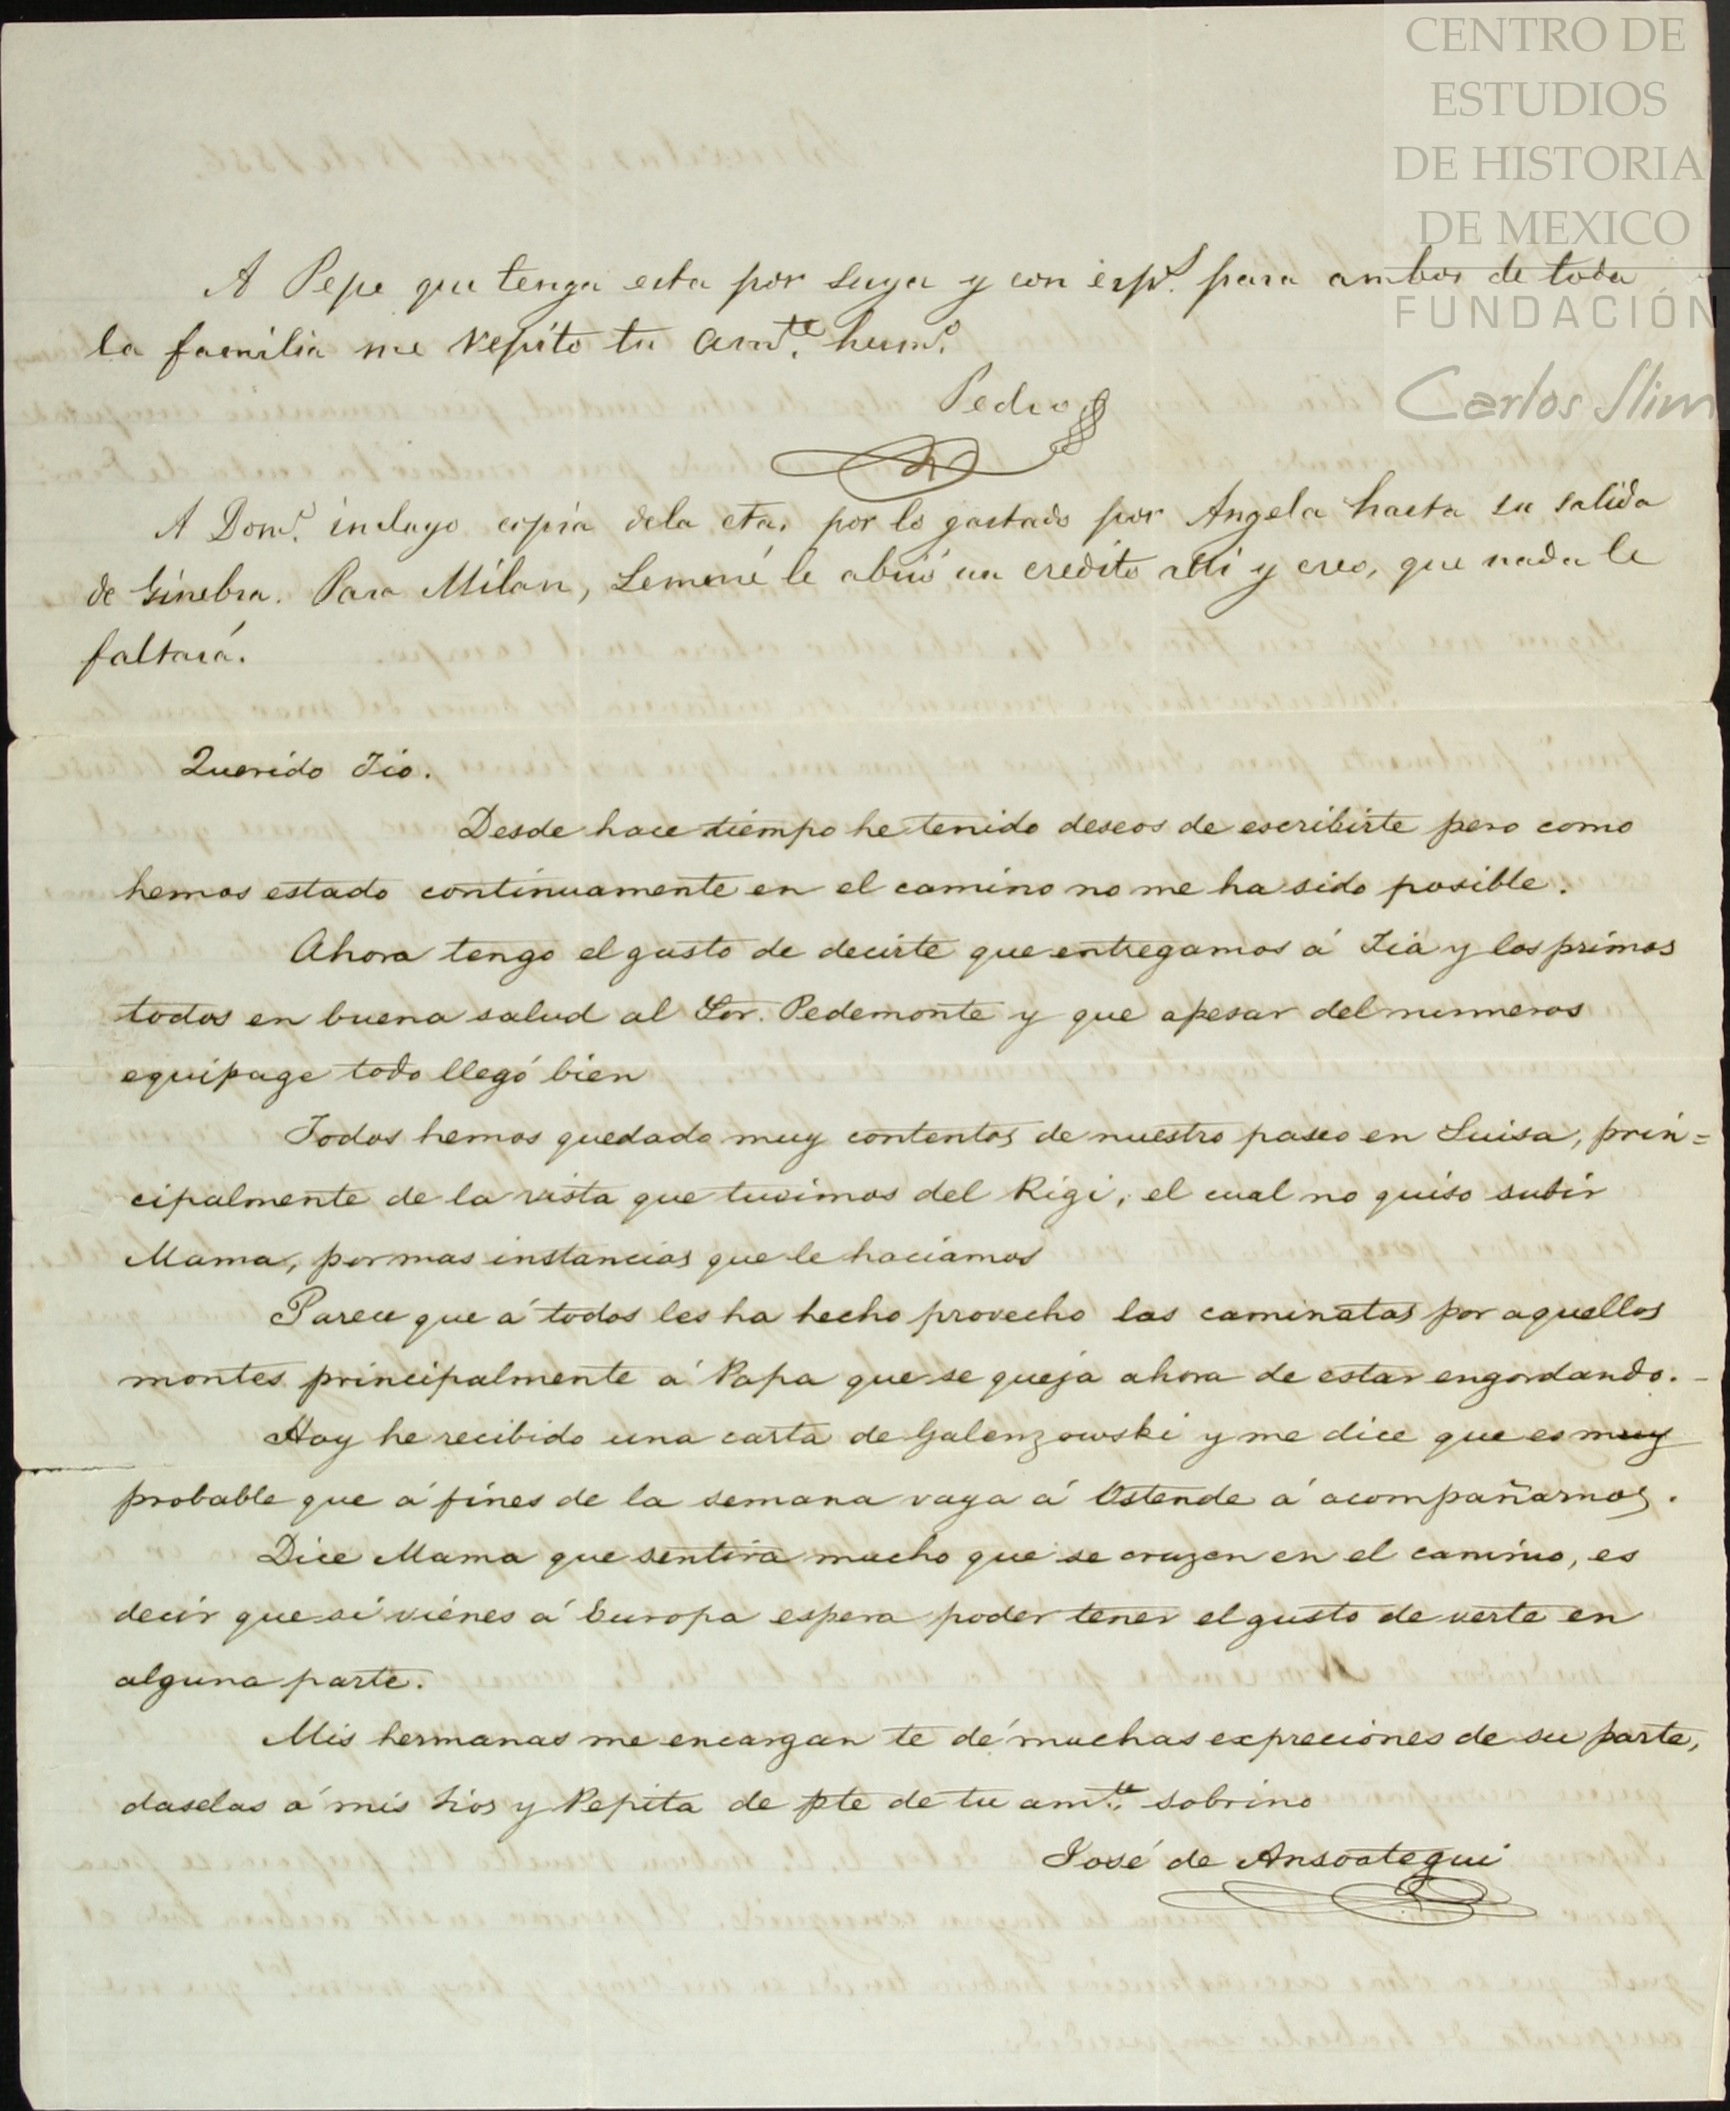 CENTRO DE
ESTUDIOS
DE HISTORIA
DE MEXICO
FUNDACIÓN
Carlos Slim
A Pepe que tenga esta por suya y con esps. para ambos de toda
la familia me repito tu amte. humo.
Pedro
A Domo. incluyo copia dela cta. por lo gastado por Angela hasta su salida
de Ginebra. Para Milan, le abrió un credito alli y creo, que nada le
faltará.
Querido Tio.
Desde hace tiempo he tenido deseos de escribirte pero como
hemos estado continuamente en el camino no me ha sido posible.
Ahora tengo el gusto de decirte que entregamos á Tia y los primos
todos en buena salud al Sor. Pedemonte y que apesar del numeros
equipage todo llegó bien
Todos hemos quedado muy contentos de nuestro paseo en Suisa, prin=
cipalmente de la vista que tuvimos del Rigi, el cual no quiso subir
Mama, por mas instancias que le haciamos
Parece que á todos les ha hecho provecho las caminatas por aquellos
montes principalmente á Papa que se queja ahora de estar engordando.-
Hoy he recibido una carta de Galenzowski y me dice que es muy
probable que á fines de la semana vaya á Ostende á acompañarnos.
Dice Mama que sentira mucho que se cruzen en el camino, es
decir que si viénes á Europa espera poder tener el gusto de verte en
alguna parte.
Mis hermanas me encargan te dé muchas expreciones de su parte,
daselas á mis tios y Pepita de pte de tu amte. sobrino
José de Ansoategui